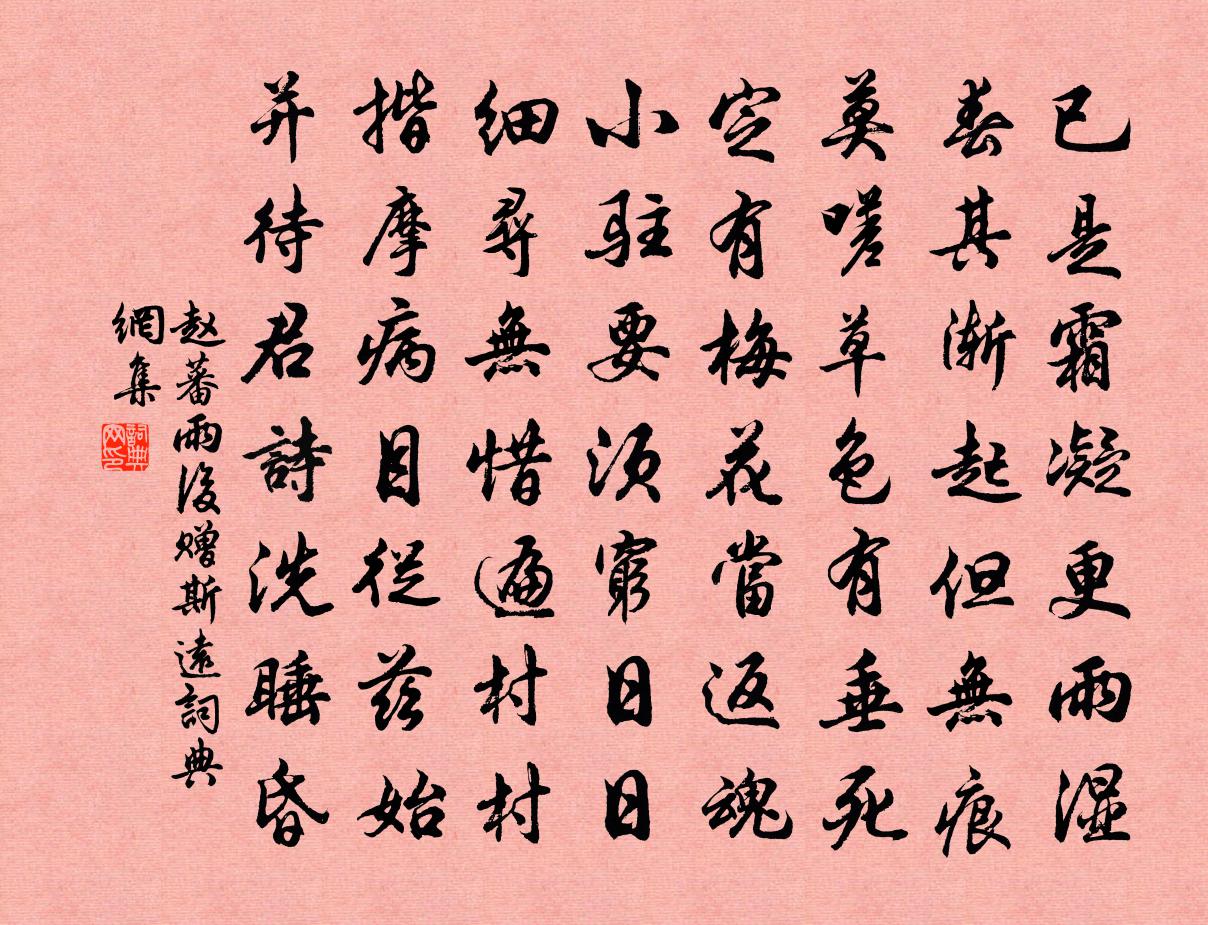 已是霜凝更雨湿
春其渐起但無痕
莫嗟草色有垂死
定有梅花當返魂
小駐要須窮日日
細尋無惜遍村村
揩摩病目從茲始
并待君詩洗睡昏
赵蕃雨後赠斯遠詞典
網集
詞典网印